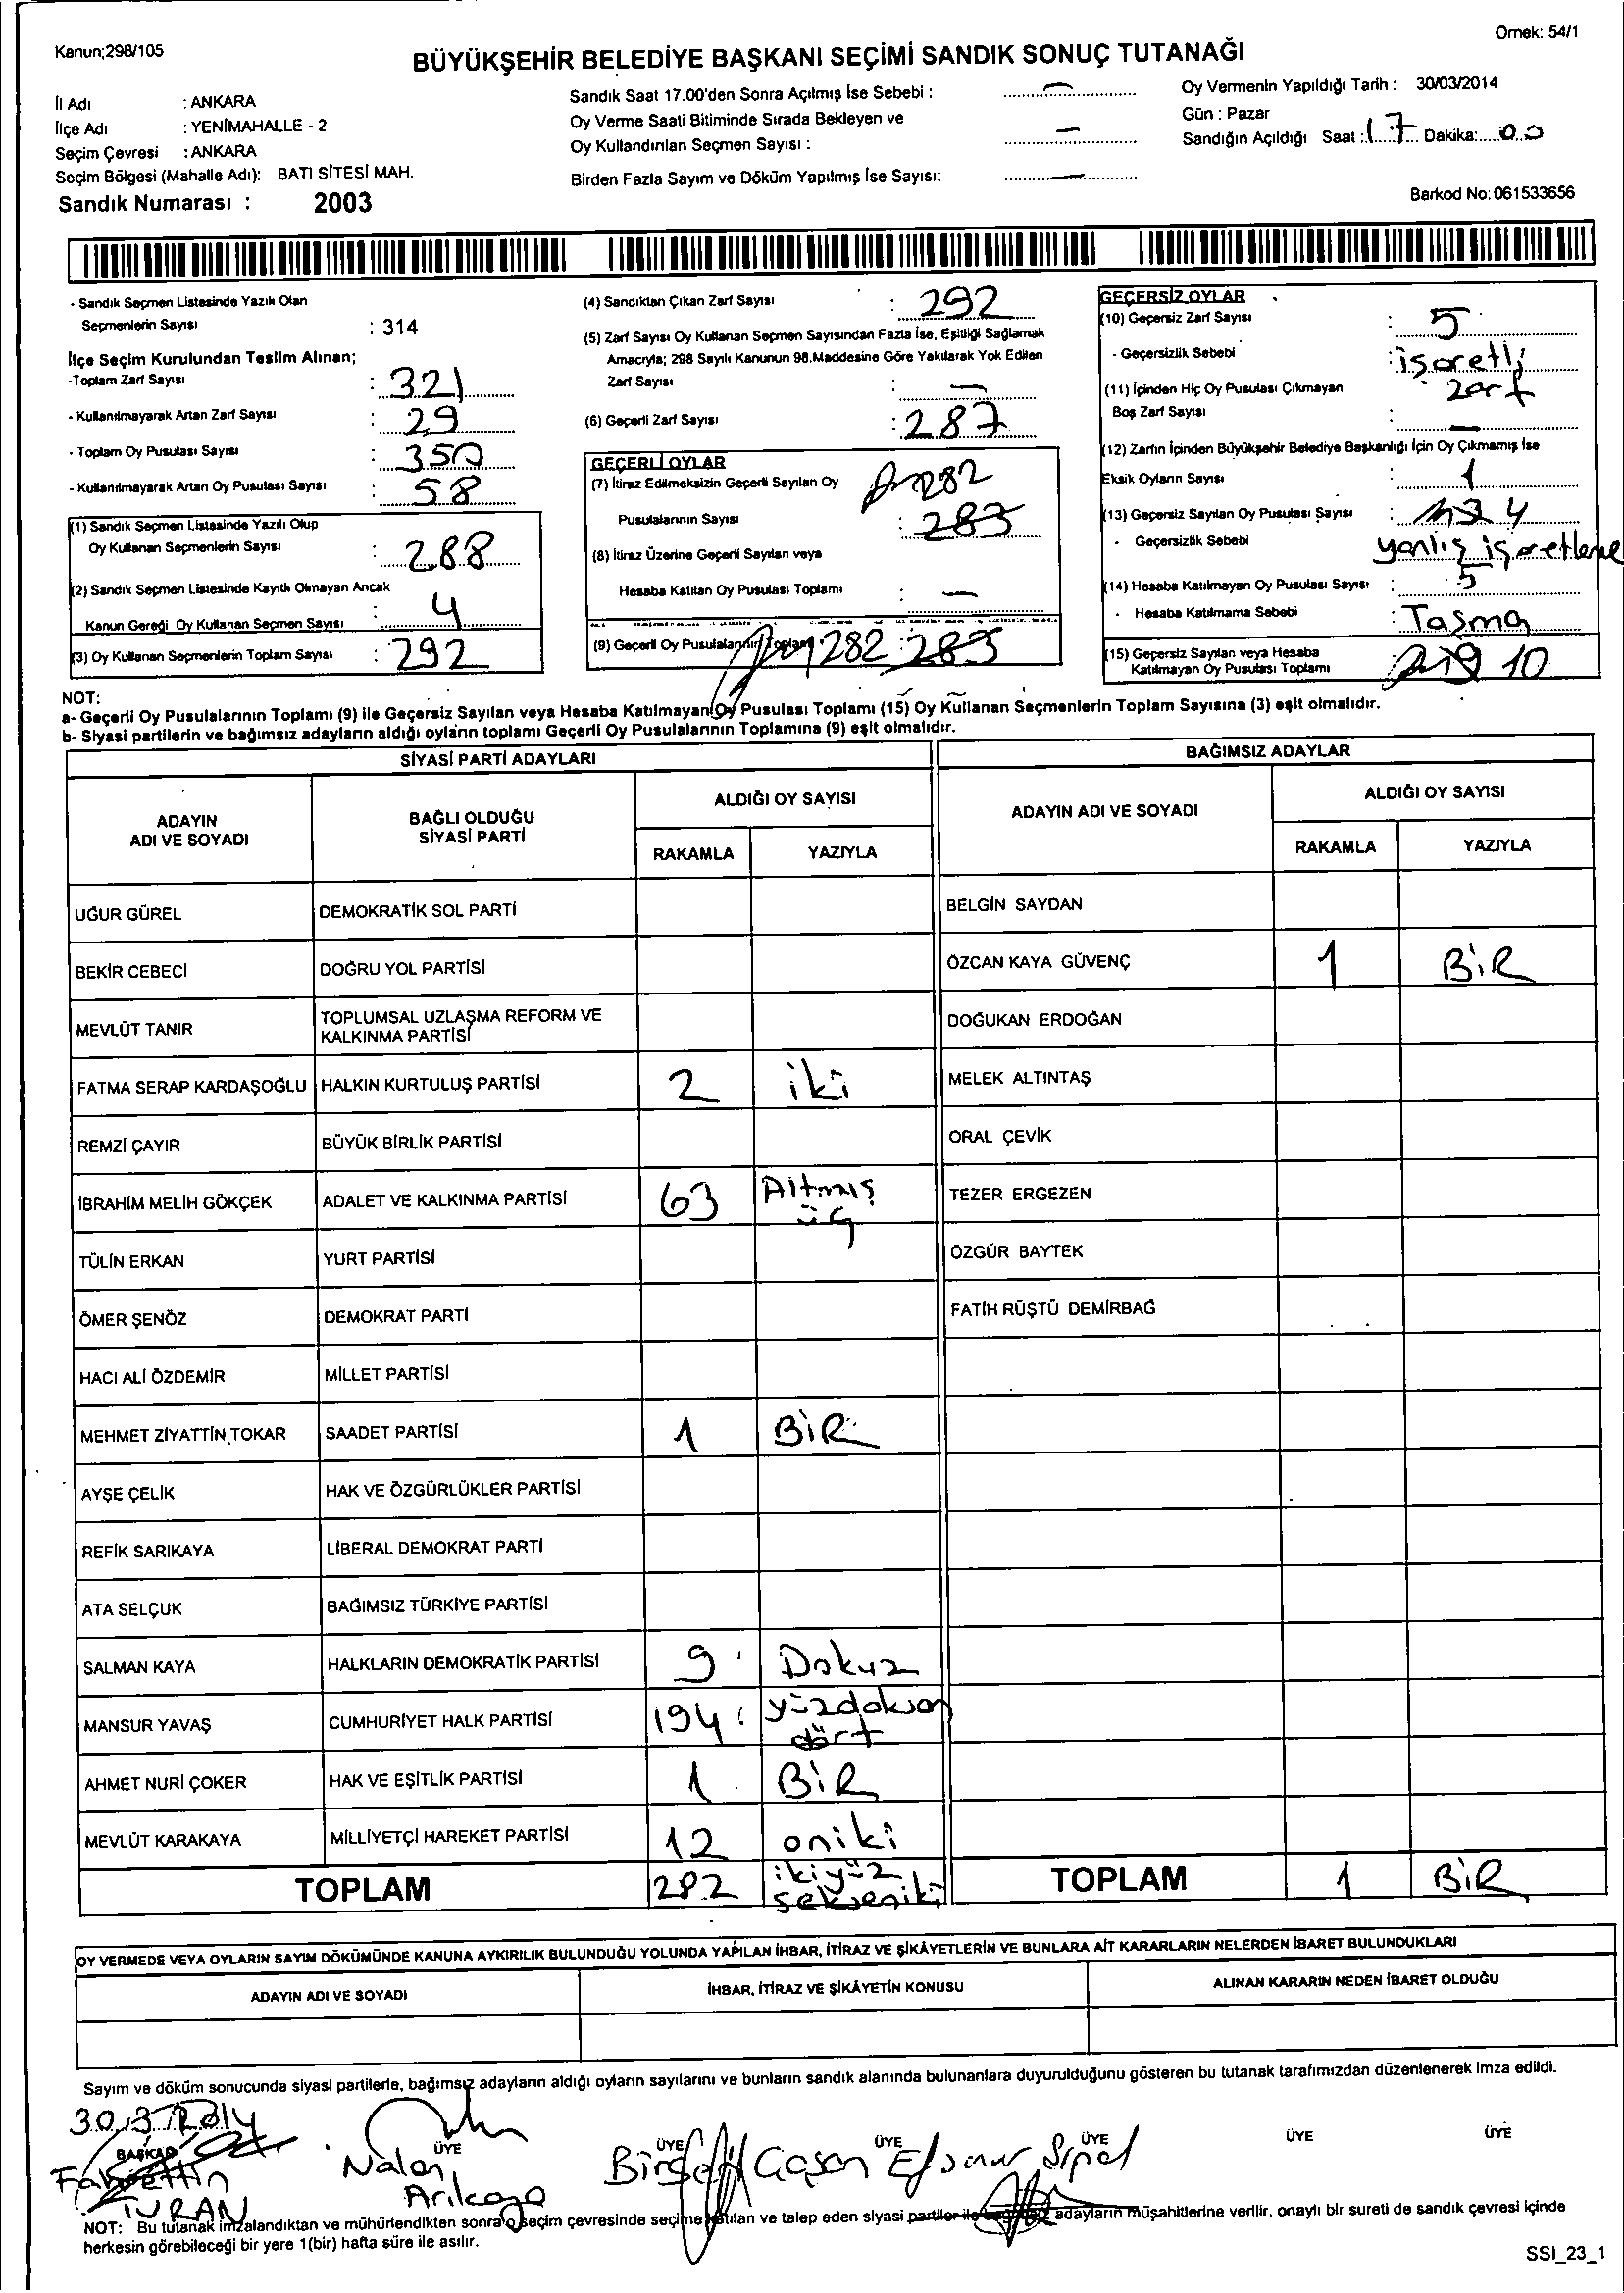 Kanun;298/105
Örnek: 54/1
BÜYÜKŞEHİR BELEDİYE BAŞKANI SEÇİMİ SANDIK SONUÇ TUTANAĞI
İl Adı : ANKARA
İlçe Adı : YENİMAHALLE - 2
Seçim Çevresi : ANKARA
Seçim Bölgesi (Mahalle Adı): BATI SİTESİ MAH.
Sandık Numarası : 2003
Sandık Saat 17.00'den Sonra Açılmış İse Sebebi : —
Oy Verme Saati Bitiminde Sırada Bekleyen ve
Oy Kullandırılan Seçmen Sayısı : —
Birden Fazla Sayım ve Döküm Yapılmış İse Sayısı: —
Oy Vermenin Yapıldığı Tarih : 30/03/2014
Gün : Pazar
Sandığın Açıldığı Saat : 17 Dakika: 00
Barkod No: 061533656
- Sandık Seçmen Listesinde Yazılı Olan
Seçmenlerin Sayısı : 314
İlçe Seçim Kurulundan Teslim Alınan;
-Toplam Zarf Sayısı : 321
- Kullanılmayarak Artan Zarf Sayısı : 29
- Toplam Oy Pusulası Sayısı : 350
- Kullanılmayarak Artan Oy Pusulası Sayısı : 58
(1) Sandık Seçmen Listesinde Yazılı Olup
Oy Kullanan Seçmenlerin Sayısı : 288
(2) Sandık Seçmen Listesinde Kayıtlı Olmayan Ancak
Kanun Gereği Oy Kullanan Seçmen Sayısı : 4
(3) Oy Kullanan Seçmenlerin Toplam Sayısı : 292
(4) Sandıktan Çıkan Zarf Sayısı : 292
(5) Zarf Sayısı Oy Kullanan Seçmen Sayısından Fazla İse, Eşitliği Sağlamak
Amacıyla; 298 Sayılı Kanunun 98.Maddesine Göre Yakılarak Yok Edilen
Zarf Sayısı : —
(6) Geçerli Zarf Sayısı : 287
GEÇERLİ OYLAR
(7) İtiraz Edilmeksizin Geçerli Sayılan Oy 282
Pusulalarının Sayısı : 283
(8) İtiraz Üzerine Geçerli Sayılan veya
Hesaba Katılan Oy Pusulası Toplamı : —
(9) Geçerli Oy Pusulalarının Toplamı 282 : 283
GEÇERSİZ OYLAR
(10) Geçersiz Zarf Sayısı : 5
- Geçersizlik Sebebi : işaretli
zarf
(11) İçinden Hiç Oy Pusulası Çıkmayan
Boş Zarf Sayısı : —
(12) Zarfın İçinden Büyükşehir Belediye Başkanlığı İçin Oy Çıkmamış İse
Eksik Oyların Sayısı : 1
(13) Geçersiz Sayılan Oy Pusulası Sayısı : 4
- Geçersizlik Sebebi yanlış işaretleme
(14) Hesaba Katılmayan Oy Pusulası Sayısı : 5
- Hesaba Katılmama Sebebi : Taşma
(15) Geçersiz Sayılan veya Hesaba
Katılmayan Oy Pusulası Toplamı : 10
NOT:
a- Geçerli Oy Pusulalarının Toplamı (9) ile Geçersiz Sayılan veya Hesaba Katılmayan Oy Pusulası Toplamı (15) Oy Kullanan Seçmenlerin Toplam Sayısına (3) eşit olmalıdır.
b- Siyasi partilerin ve bağımsız adayların aldığı oyların toplamı Geçerli Oy Pusulalarının Toplamına (9) eşit olmalıdır.
SİYASİ PARTİ ADAYLARI
BAĞIMSIZ ADAYLAR
ADAYIN
ADI VE SOYADI
BAĞLI OLDUĞU
SİYASİ PARTİ
ALDIĞI OY SAYISI
RAKAMLA YAZIYLA
ADAYIN ADI VE SOYADI
ALDIĞI OY SAYISI
RAKAMLA YAZIYLA
UĞUR GÜREL DEMOKRATİK SOL PARTİ
BELGİN SAYDAN
BEKİR CEBECİ DOĞRU YOL PARTİSİ
ÖZCAN KAYA GÜVENÇ 1 BİR
MEVLÜT TANIR TOPLUMSAL UZLAŞMA REFORM VE
KALKINMA PARTİSİ
DOĞUKAN ERDOĞAN
FATMA SERAP KARDAŞOĞLU HALKIN KURTULUŞ PARTİSİ 2 iki
MELEK ALTINTAŞ
REMZİ ÇAYIR BÜYÜK BİRLİK PARTİSİ
ORAL ÇEVİK
İBRAHİM MELİH GÖKÇEK ADALET VE KALKINMA PARTİSİ 63 Altmış
üç
TEZER ERGEZEN
TÜLİN ERKAN YURT PARTİSİ
ÖZGÜR BAYTEK
ÖMER ŞENÖZ DEMOKRAT PARTİ
FATİH RÜŞTÜ DEMİRBAĞ
HACI ALİ ÖZDEMİR MİLLET PARTİSİ
MEHMET ZİYATTİN TOKAR SAADET PARTİSİ 1 BİR
AYŞE ÇELİK HAK VE ÖZGÜRLÜKLER PARTİSİ
REFİK SARIKAYA LİBERAL DEMOKRAT PARTİ
ATA SELÇUK BAĞIMSIZ TÜRKİYE PARTİSİ
SALMAN KAYA HALKLARIN DEMOKRATİK PARTİSİ 9 Dokuz
MANSUR YAVAŞ CUMHURİYET HALK PARTİSİ 194 yüzdoksan
dört
AHMET NURİ ÇOKER HAK VE EŞİTLİK PARTİSİ 1 BİR
MEVLÜT KARAKAYA MİLLİYETÇİ HAREKET PARTİSİ 12 oniki
TOPLAM 282 ikiyüz
sekseniki
TOPLAM 1 BİR
OY VERMEDE VEYA OYLARIN SAYIM DÖKÜMÜNDE KANUNA AYKIRILIK BULUNDUĞU YOLUNDA YAPILAN İHBAR, İTİRAZ VE ŞİKÂYETLERİN VE BUNLARA AİT KARARLARIN NELERDEN İBARET BULUNDUKLARI
ADAYIN ADI VE SOYADI İHBAR, İTİRAZ VE ŞİKÂYETİN KONUSU ALINAN KARARIN NEDEN İBARET OLDUĞU
Sayım ve döküm sonucunda siyasi partilerle, bağımsız adayların aldığı oyların sayılarını ve bunların sandık alanında bulunanlara duyurulduğunu gösteren bu tutanak tarafımızdan düzenlenerek imza edildi.
30.3.2014
BAŞKAN ÜYE ÜYE ÜYE ÜYE ÜYE ÜYE
Fahrettin
TURAN
Nalan
Arıkaya
NOT: Bu tutanak imzalandıktan ve mühürlendikten sonra o seçim çevresinde seçime katılan ve talep eden siyasi partiler ile bağımsız adayların müşahitlerine verilir, onaylı bir sureti de sandık çevresi içinde
herkesin görebileceği bir yere 1(bir) hafta süre ile asılır.
SSI_23_1